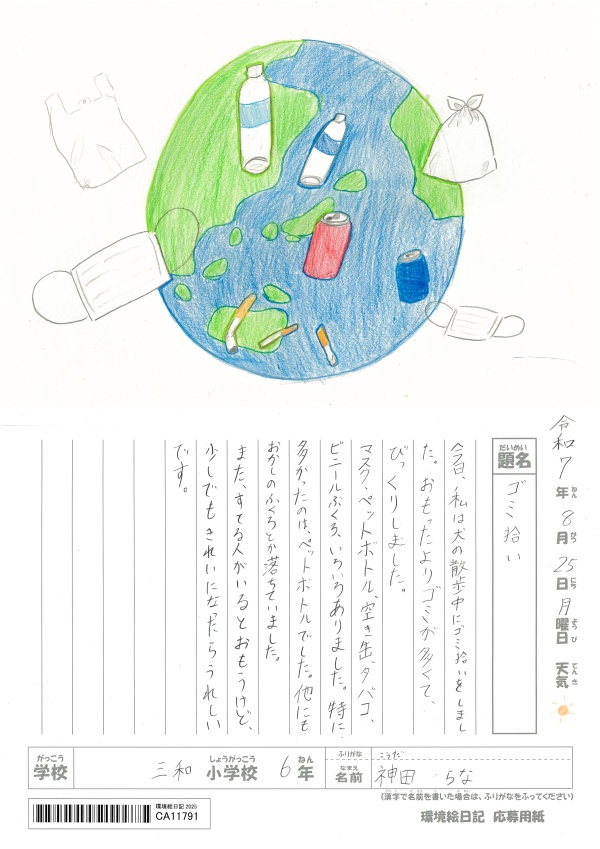 令和7年8月25日月曜日 天気
ねん がつ にち ようび てんき
だいめい
題名 ゴミ拾い
今日、私は犬の散歩中にゴミ拾いをしまし
た。おもったよりゴミが多くて、
びっくりしました。
マスク、ペットボトル、空き缶、タバコ、
ビニールぶくろ、いろいろありました。特に
多かったのは、ペットボトルでした。他にも
おかしのふくろとか落ちていました。
また、すてる人がいるとおもうけど、
少しでもきれいになったらうれしい
です。
がっこう しょうがっこう ねん
学校 三和 小学校 6年
ふりがな こうだ
なまえ
名前 神田 らな
(漢字で名前を書いた場合は、ふりがなをふってください)
環境絵日記 2025
CA11791
環境絵日記 応募用紙